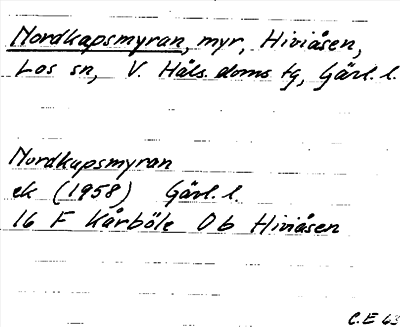 Nordkapsmyran, myr, Hiviåsen,
Los sn, V. Häls. doms tg, Gävl. l.
Nordkapsmyran
ek (1958) Gävl. l.
16 F Kårböle 0 b Hiviåsen
C.E 63